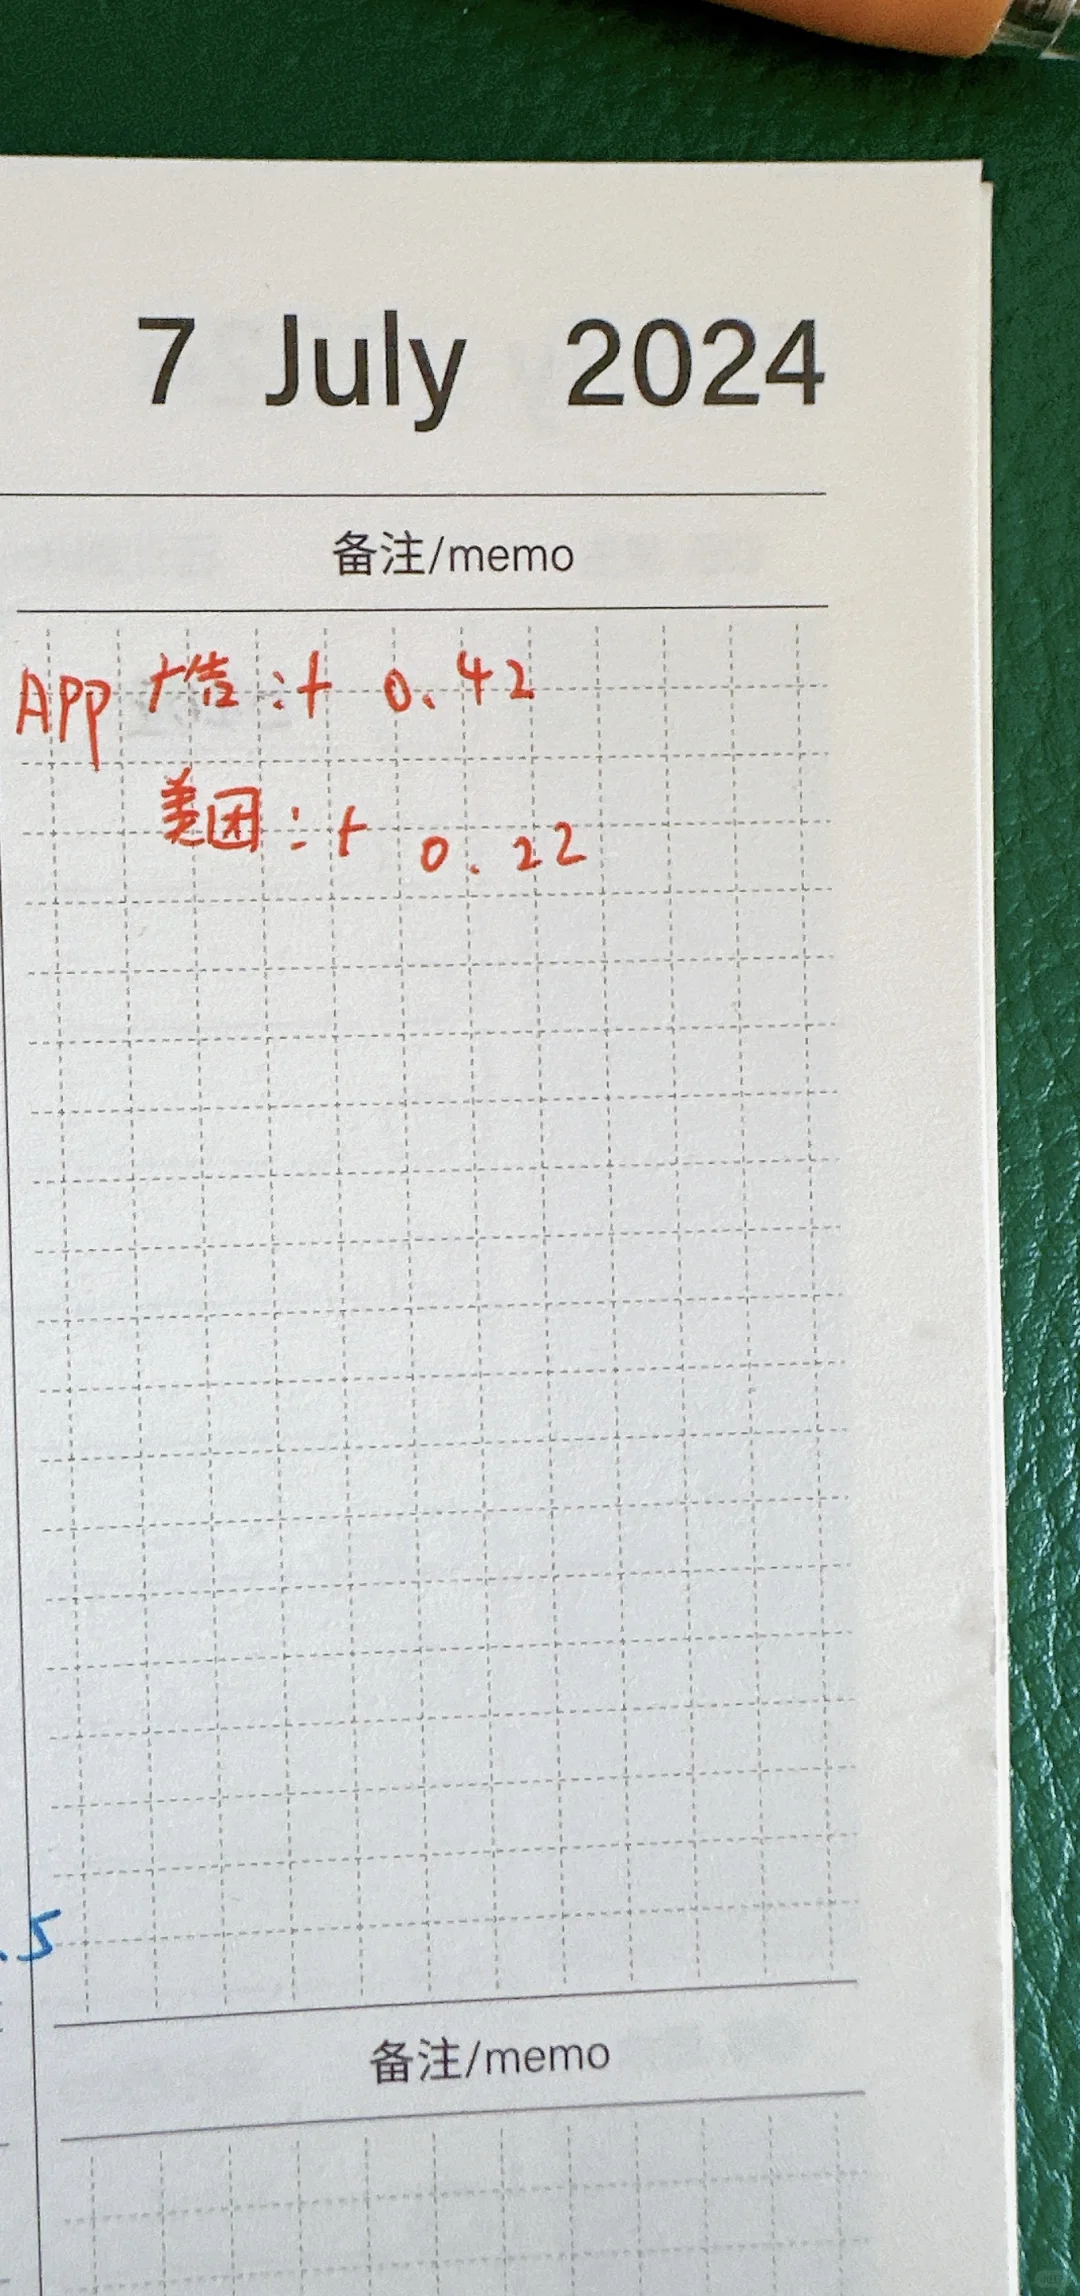 7 July 2024
备注/memo
App 广告:+ 0.42
美团:+ 0.22
.5
备注/memo